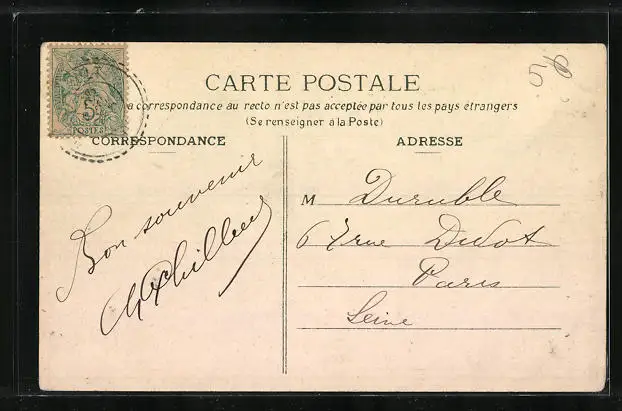 5/8
CARTE POSTALE
a correspondance au recto n'est pas acceptée par tous les pays étrangers
(Se renseigner à la Poste)
CORRESPONDANCE
ADRESSE
5c
POSTES
Bon souvenir
M Duruble
67 rue Didot
Paris
Seine